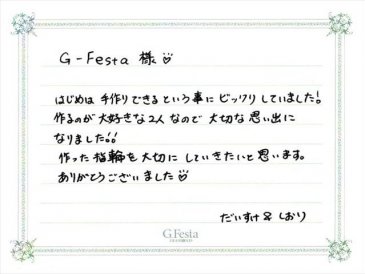 G-Festa 様
はじめは 手作りできる という事に ビックリ していました!
作るのが 大好きな 2人 なので 大切な 思い出に
なりました!!
作った 指輪を 大切に していきたいと 思います。
ありがとうございました
だいすけ & しおり
G.Festa